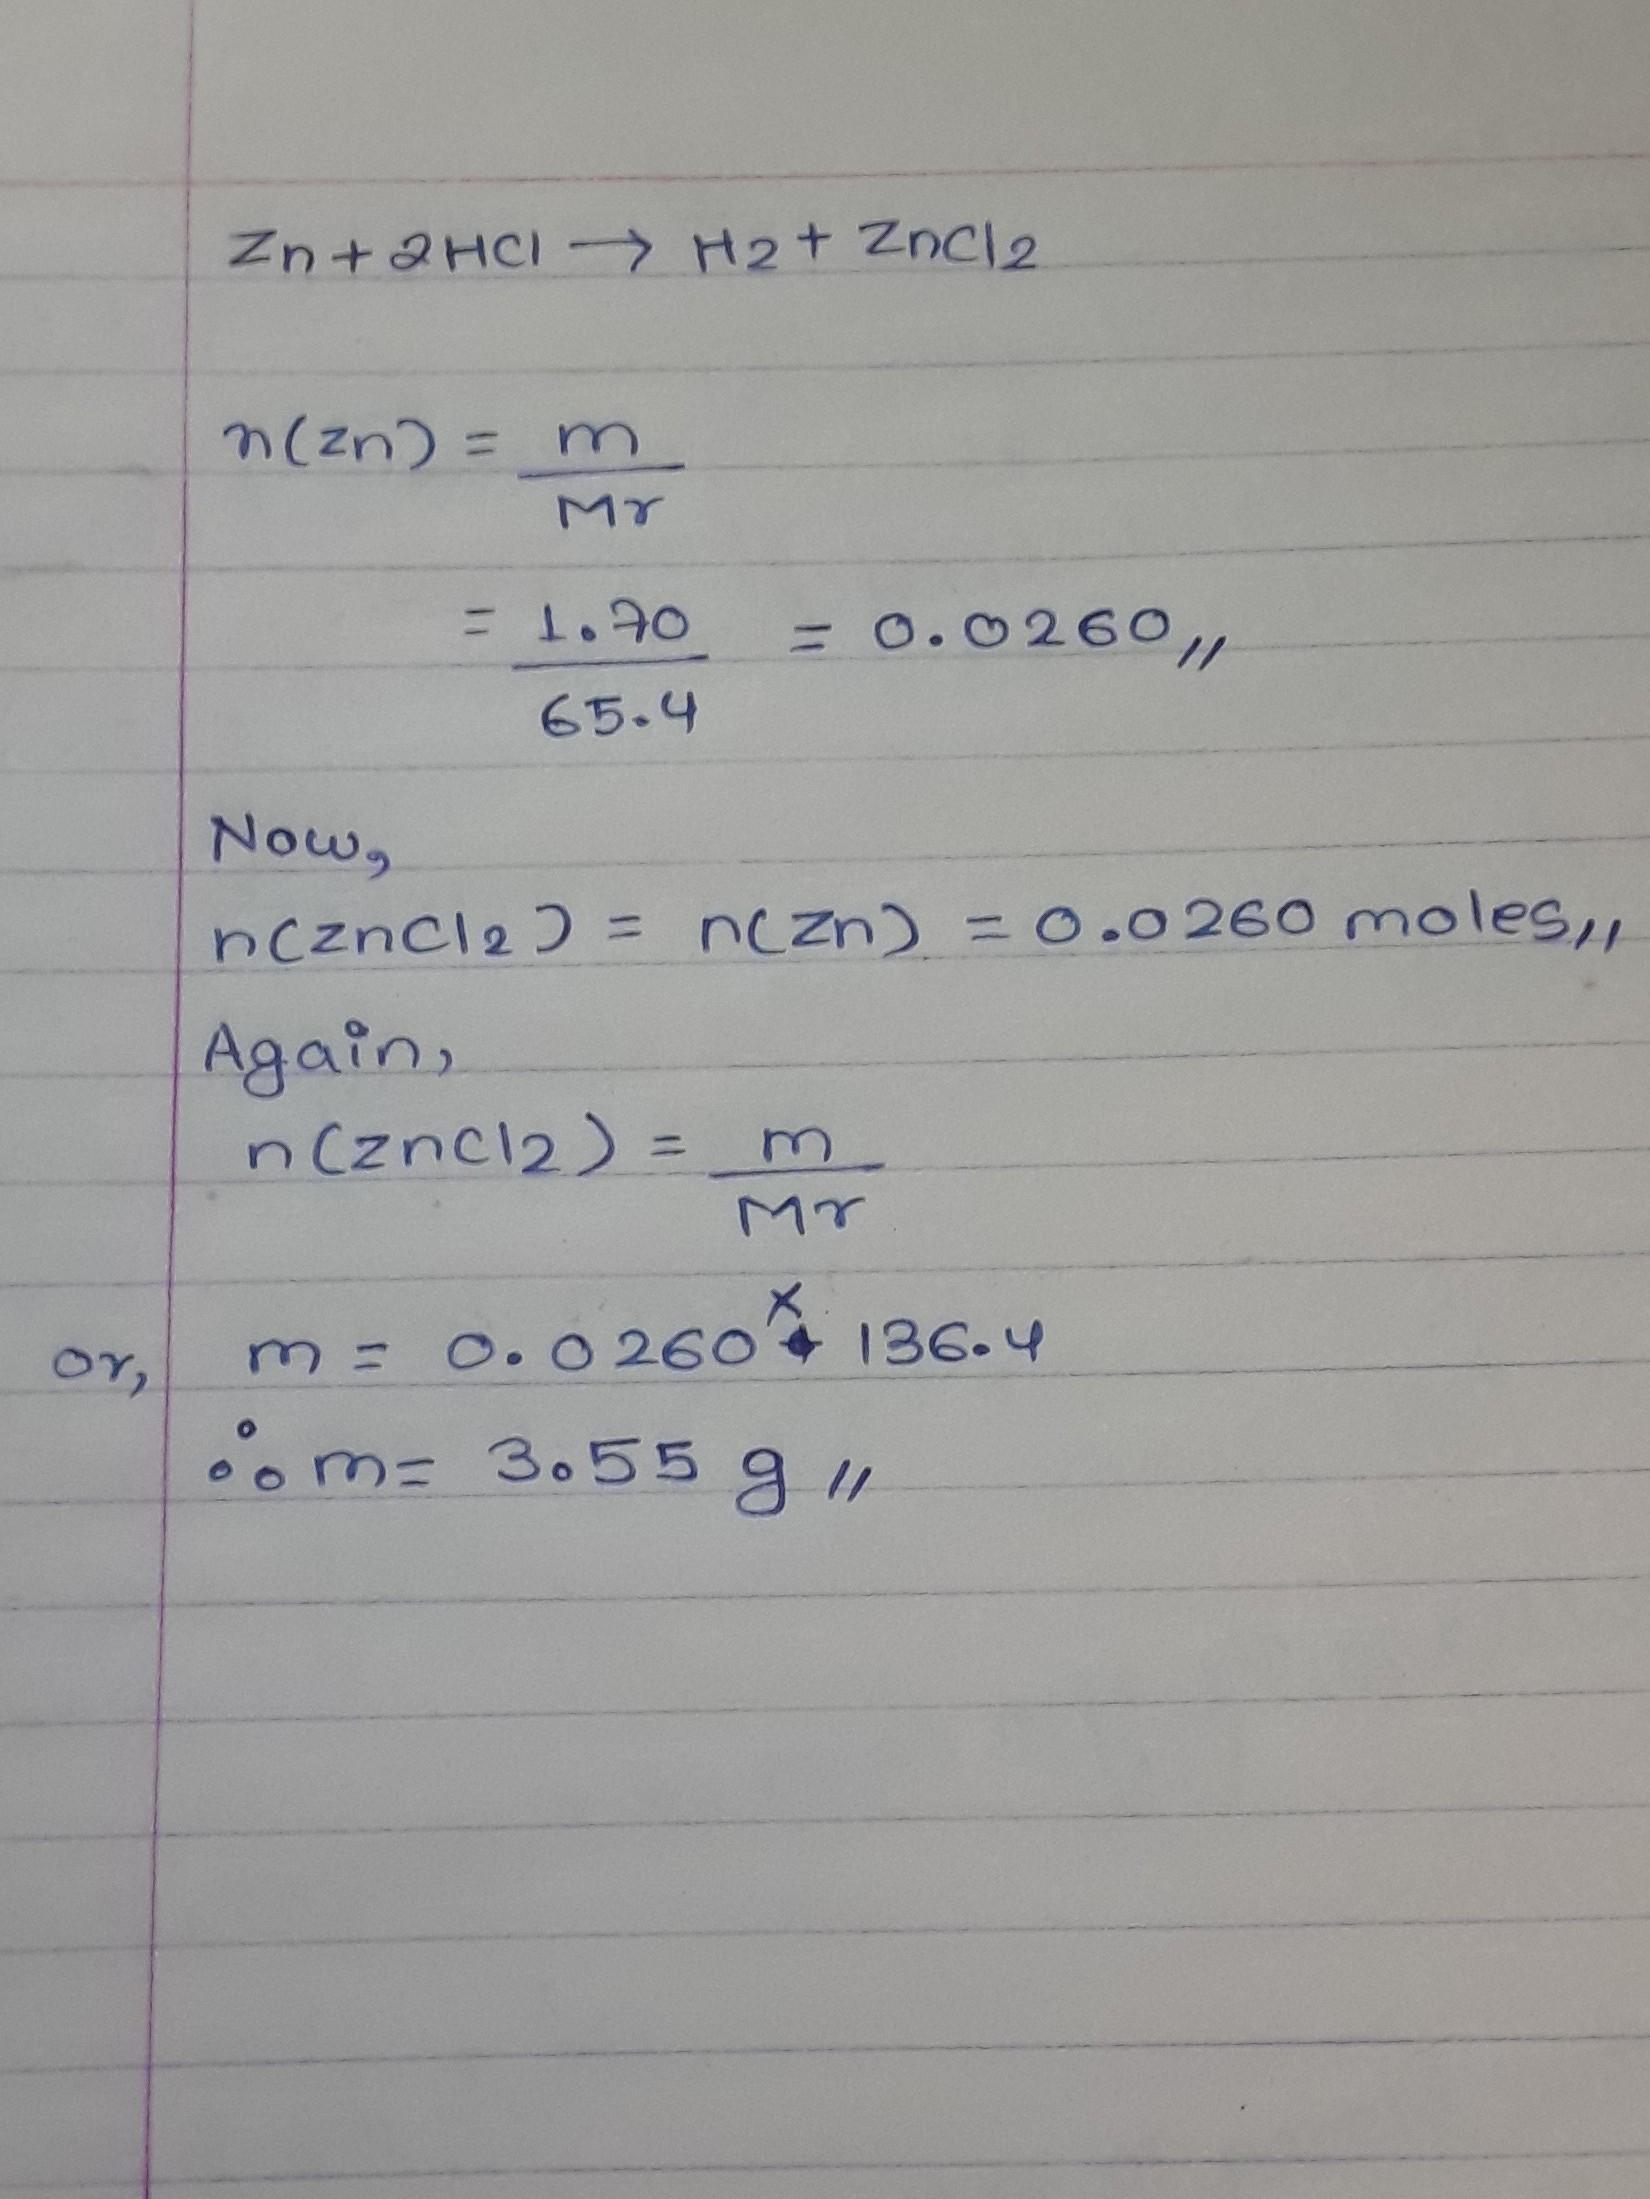 Zn + 2HCl → H2 + ZnCl2
n(Zn) = m
Mr
= 1.70 = 0.0260,,
65.4
Now,
n(ZnCl2) = n(Zn) = 0.0260 moles,,
Again,
n(ZnCl2) = m
Mr
or, m = 0.0260 × 136.4
∴ m = 3.55 g ,,